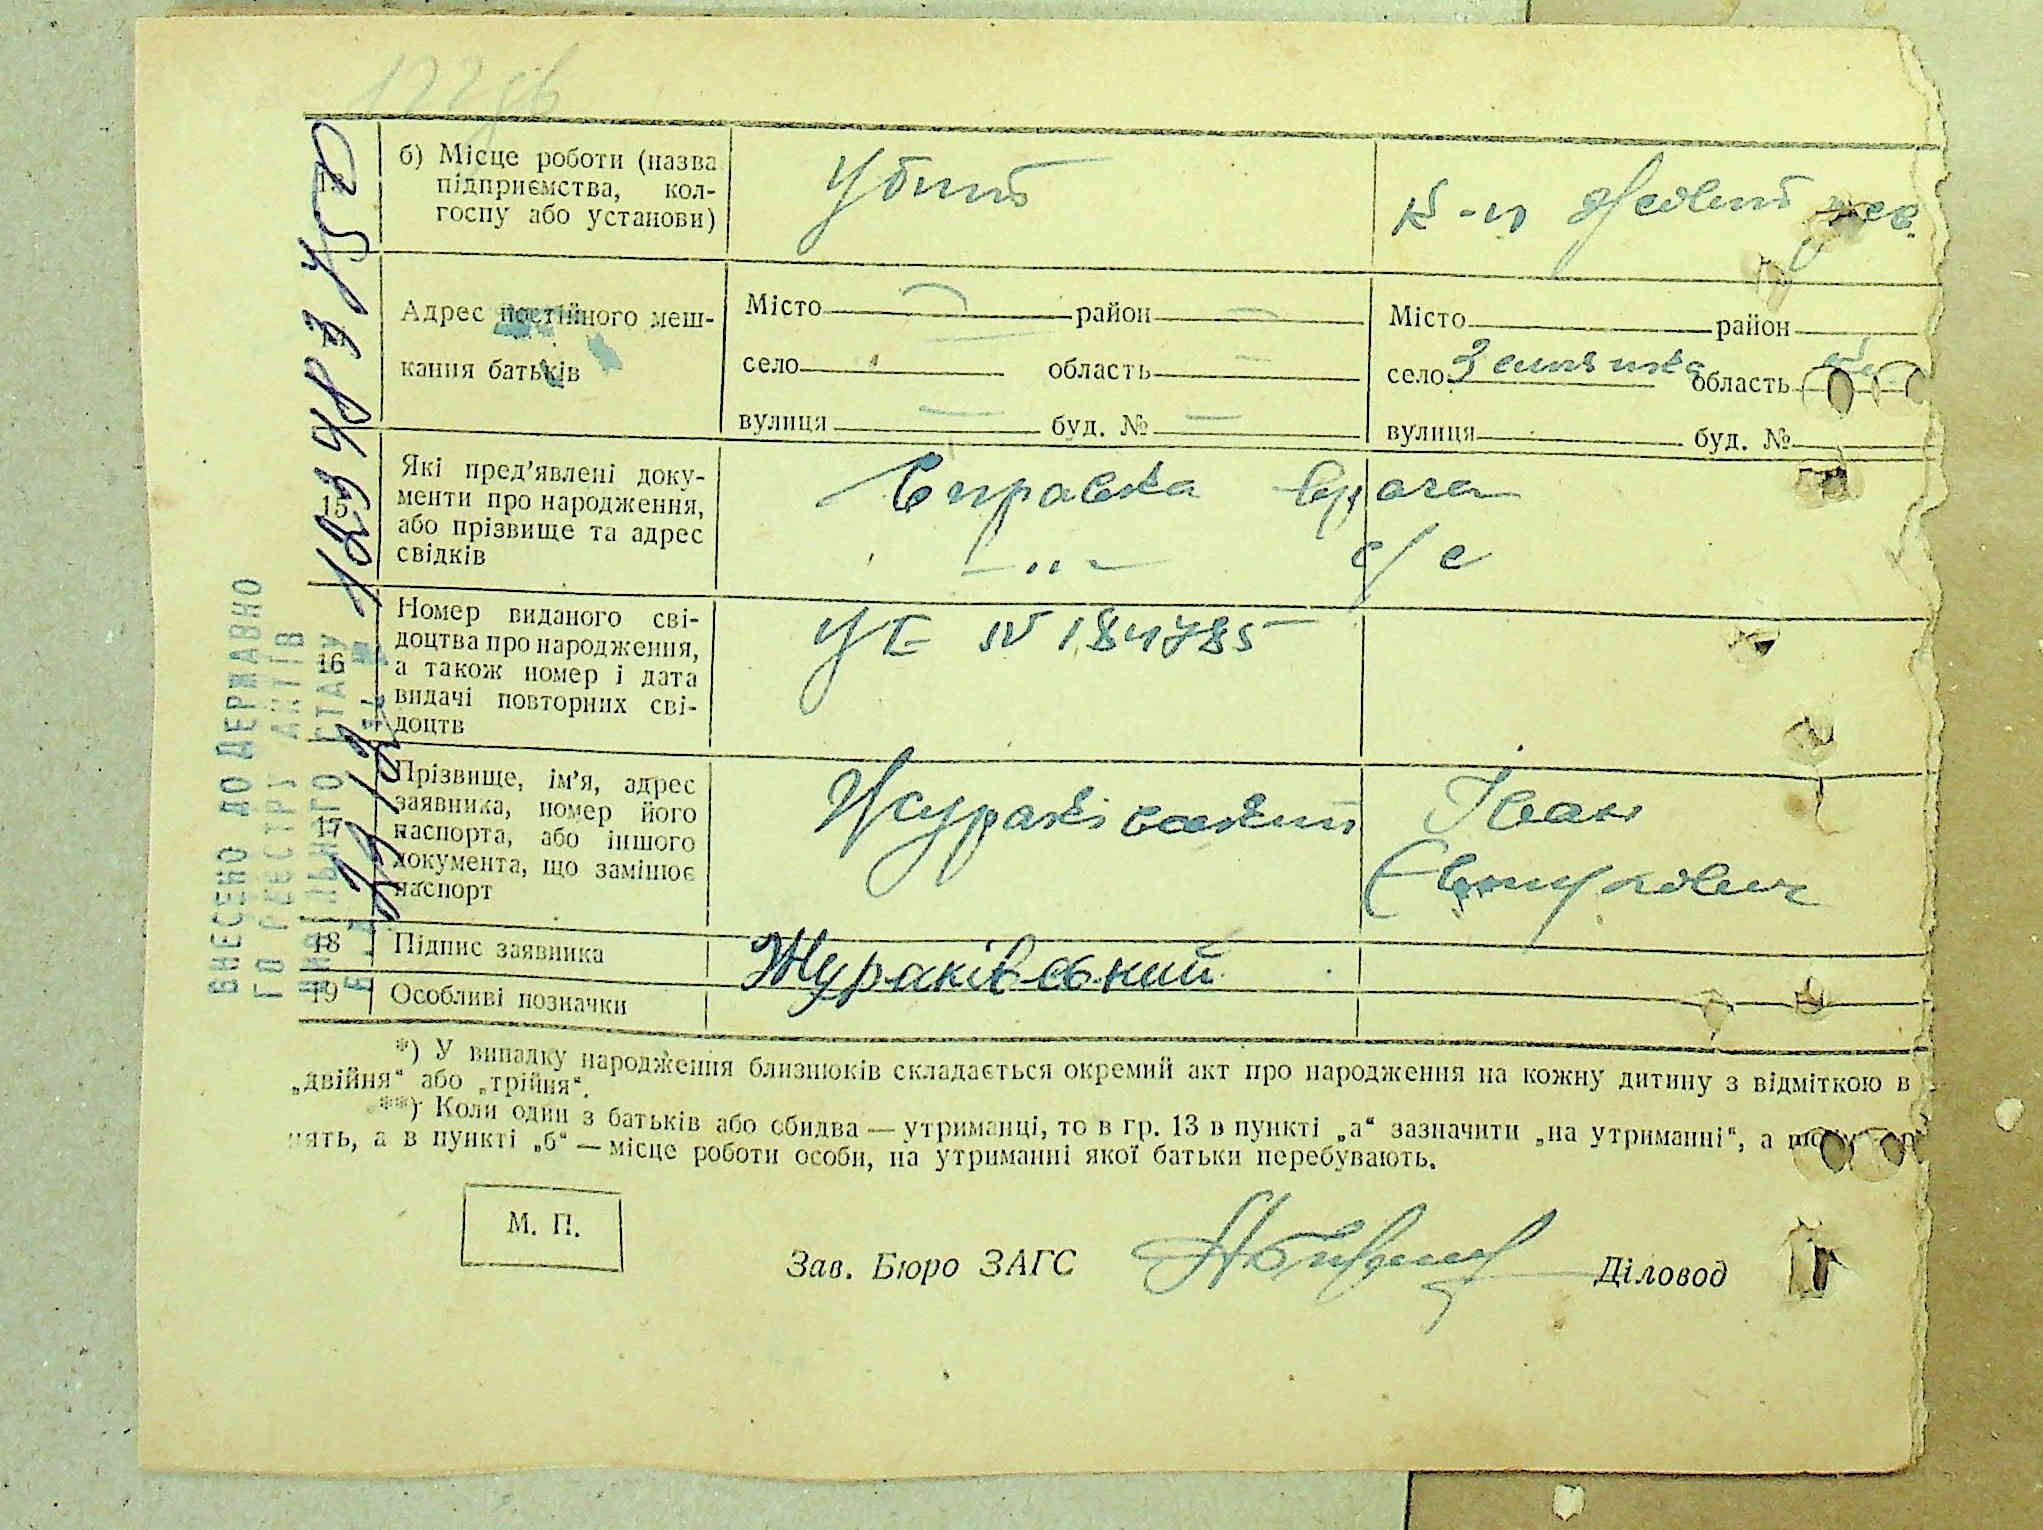 б) Місце роботи (назва
підприємства, кол-
госпу або установи)
Убит
к-п
Адрес постійного меш-
кання батьків
Місто район
село область
вулиця буд. №
Місто район
село область
вулиця буд. №
15
Які пред’явлені доку-
менти про народження,
або прізвище та адрес
свідків
Справка врача
— „ — с/с
16
Номер виданого сві-
доцтва про народження,
а також номер і дата
видачі повторних сві-
доцтв
УЕ № 184785
17
Прізвище, ім’я, адрес
заявника, номер його
паспорта, або іншого
документа, що замінює
паспорт
Жураківський Іван
18
Підпис заявника
Жураківський
19
Особливі позначки
ВНЕСЕНО ДО ДЕРЖАВНО
ГО РЕЄСТРУ АКТІВ
*) У випадку народження близнюків складається окремий акт про народження на кожну дитину з відміткою в
„двійня“ або „трійня“.
**) Коли один з батьків або обидва — утриманці, то в гр. 13 в пункті „а“ зазначити „на утриманні“, а
нять, а в пункті „б“ — місце роботи особи, на утриманні якої батьки перебувають.
М. П.
Зав. Бюро ЗАГС Діловод